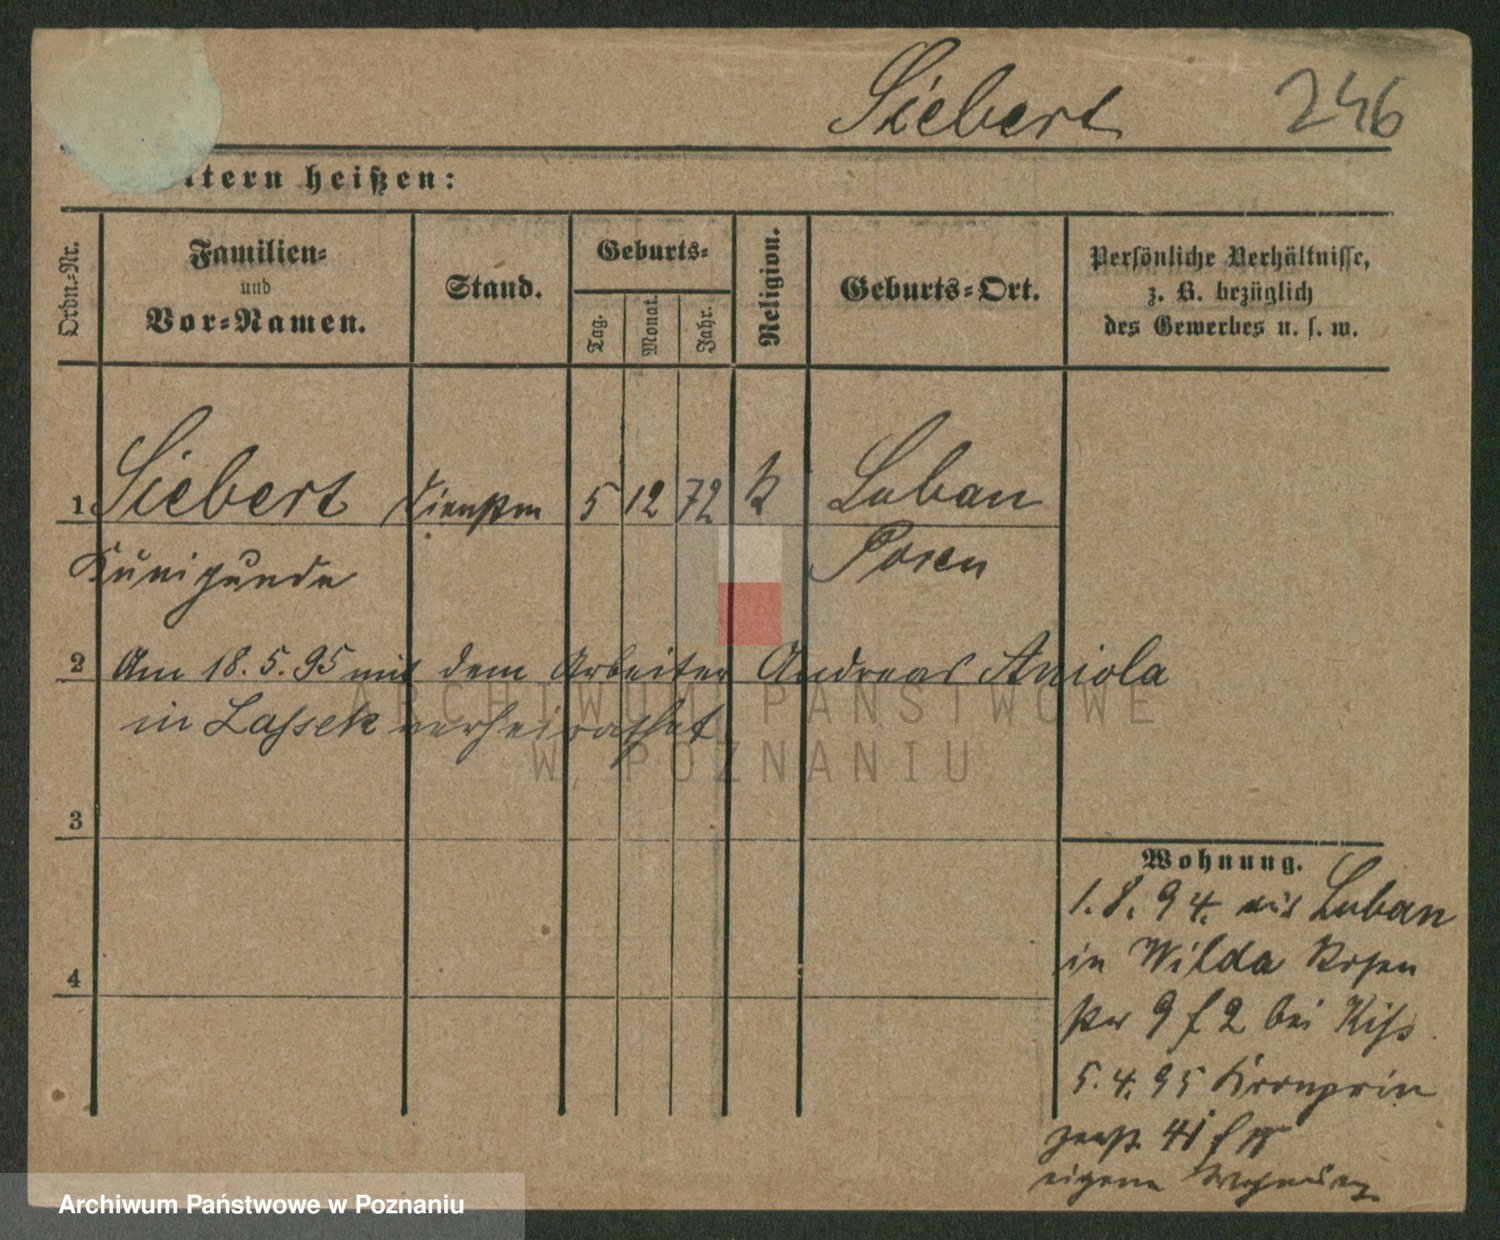 Siebert 246
ltern heißen:
Ordn.-Nr.
Familien-
und
Vor-Namen.
Stand.
Geburts-
Tag.
Monat.
Jahr.
Religion.
Geburts-Ort.
Persönliche Verhältnisse,
z. B. bezüglich
des Gewerbes u. s. w.
1 Siebert Dienstm 5 12 72 k Luban
Kunigunde Posen
2 Am 18.5.95 mit dem Arbeiter Andreas Aniola
in Lassek verheirathet
ARCHIWUM PAŃSTWOWE
W POZNANIU
3
Wohnung.
1.8.94. aus Luban
in Wilda Rosen
str 9 f 2 bei Kiss
4
5.4.95 Kronprin
zenst. 41 f
eigene Wohnung
Archiwum Państwowe w Poznaniu